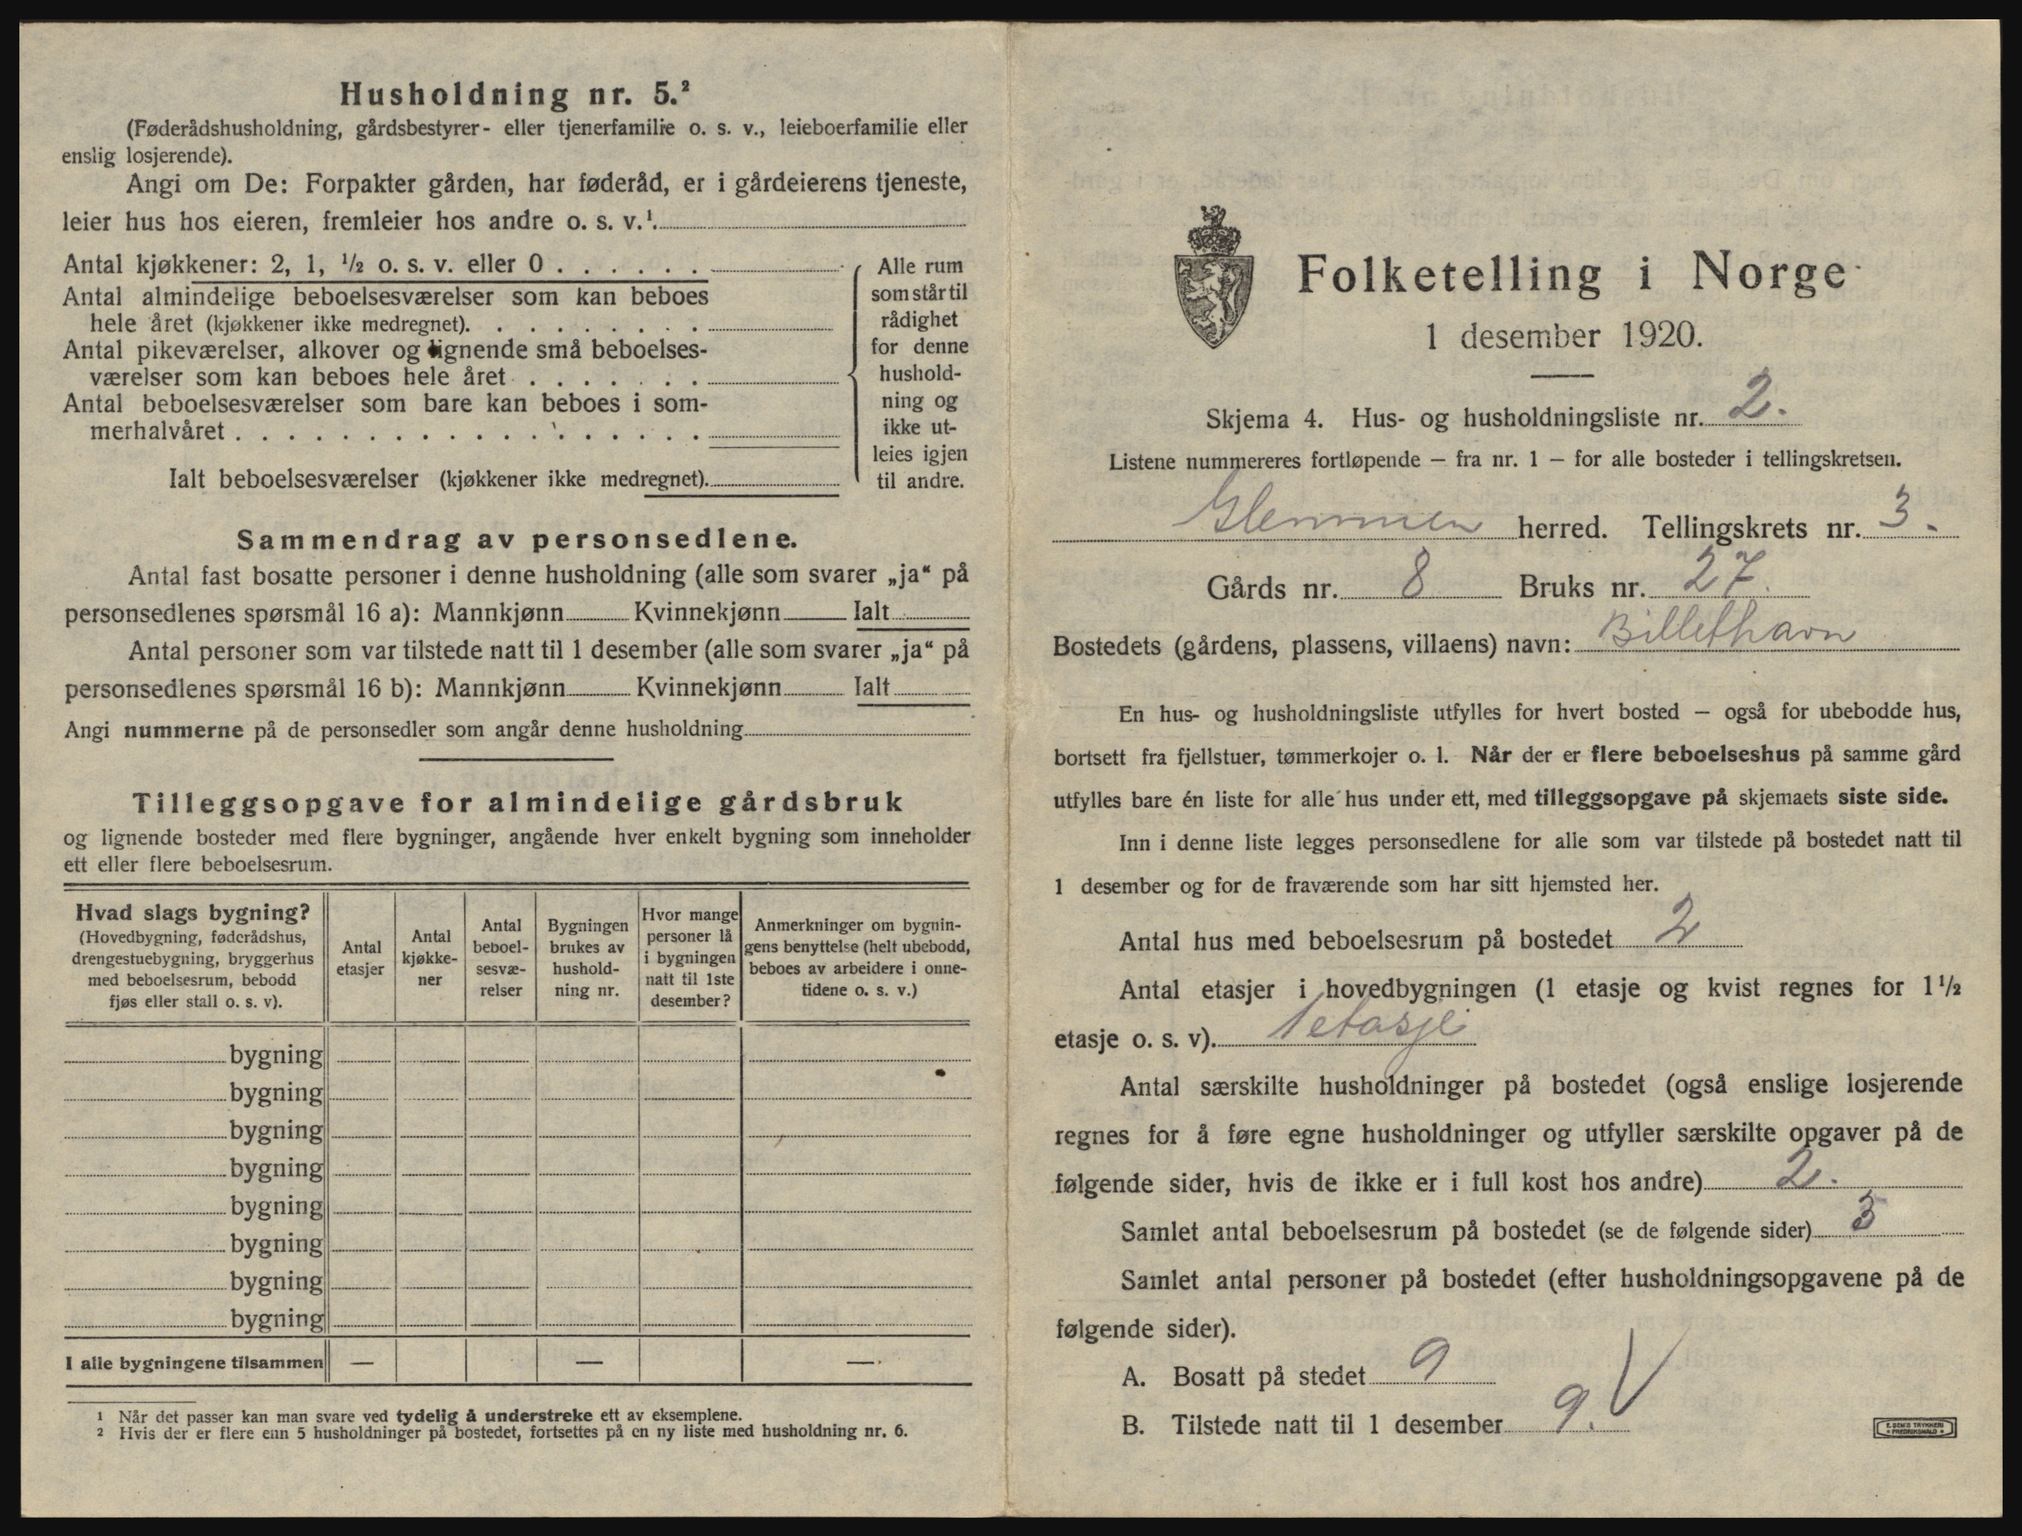 Husholdning nr. 5.²
(Føderådshusholdning, gårdsbestyrer- eller tjenerfamilie o. s. v., leieboerfamilie eller
enslig losjerende).
Angi om De: Forpakter gården, har føderåd, er i gårdeierens tjeneste,
leier hus hos eieren, fremleier hos andre o. s. v.¹.
Antal kjøkkener: 2, 1, ½ o. s. v. eller 0 . . . . . .
Antal almindelige beboelsesværelser som kan beboes
hele året (kjøkkener ikke medregnet). . . . . . . . .
Antal pikeværelser, alkover og lignende små beboelses-
værelser som kan beboes hele året . . . . . . .
Antal beboelsesværelser som bare kan beboes i som-
merhalvåret . . . . . . . . . . . . . . . . . .
Ialt beboelsesværelser (kjøkkener ikke medregnet).
Alle rum
som står til
rådighet
for denne
hushold-
ning og
ikke ut-
leies igjen
til andre.
Sammendrag av personsedlene.
Antal fast bosatte personer i denne husholdning (alle som svarer „ja“ på
personsedlenes spørsmål 16 a): Mannkjønn Kvinnekjønn Ialt
Antal personer som var tilstede natt til 1 desember (alle som svarer „ja“ på
personsedlenes spørsmål 16 b): Mannkjønn Kvinnekjønn Ialt
Angi nummerne på de personsedler som angår denne husholdning
Tilleggsopgave for almindelige gårdsbruk
og lignende bosteder med flere bygninger, angående hver enkelt bygning som inneholder
ett eller flere beboelsesrum.
Hvad slags bygning?
(Hovedbygning, føderådshus,
drengestuebygning, bryggerhus
med beboelsesrum, bebodd
fjøs eller stall o. s. v).
Antal
etasjer
Antal
kjøkke-
ner
Antal
beboel-
sesvæ-
relser
Bygningen
brukes av
hushold-
ning nr.
Hvor mange
personer lå
i bygningen
natt til 1ste
desember?
Anmerkninger om bygnin-
gens benyttelse (helt ubebodd,
beboes av arbeidere i onne-
tidene o. s. v.)
bygning
bygning
bygning
bygning
bygning
bygning
bygning
bygning
I alle bygningene tilsammen — — —
¹ Når det passer kan man svare ved tydelig å understreke ett av eksemplene.
² Hvis der er flere enn 5 husholdninger på bostedet, fortsettes på en ny liste med husholdning nr. 6.
Folketelling i Norge
1 desember 1920.
Skjema 4. Hus- og husholdningsliste nr. 2.
Listene nummereres fortløpende — fra nr. 1 — for alle bosteder i tellingskretsen.
Glemmen herred. Tellingskrets nr. 3.
Gårds nr. 8 Bruks nr. 27.
Bostedets (gårdens, plassens, villaens) navn: Billethavn
En hus- og husholdningsliste utfylles for hvert bosted — også for ubebodde hus,
bortsett fra fjellstuer, tømmerkojer o. l. Når der er flere beboelseshus på samme gård
utfylles bare én liste for alle hus under ett, med tilleggsopgave på skjemaets siste side.
Inn i denne liste legges personsedlene for alle som var tilstede på bostedet natt til
1 desember og for de fraværende som har sitt hjemsted her.
Antal hus med beboelsesrum på bostedet 2
Antal etasjer i hovedbygningen (1 etasje og kvist regnes for 1½
etasje o. s. v). 1 etasje
Antal særskilte husholdninger på bostedet (også enslige losjerende
regnes for å føre egne husholdninger og utfyller særskilte opgaver på de
følgende sider, hvis de ikke er i full kost hos andre) 2.
Samlet antal beboelsesrum på bostedet (se de følgende sider) 3
Samlet antal personer på bostedet (efter husholdningsopgavene på de
følgende sider).
A. Bosatt på stedet 9
B. Tilstede natt til 1 desember 9. V
E. SEM'S TRYKKERI
FREDRIKSHALD